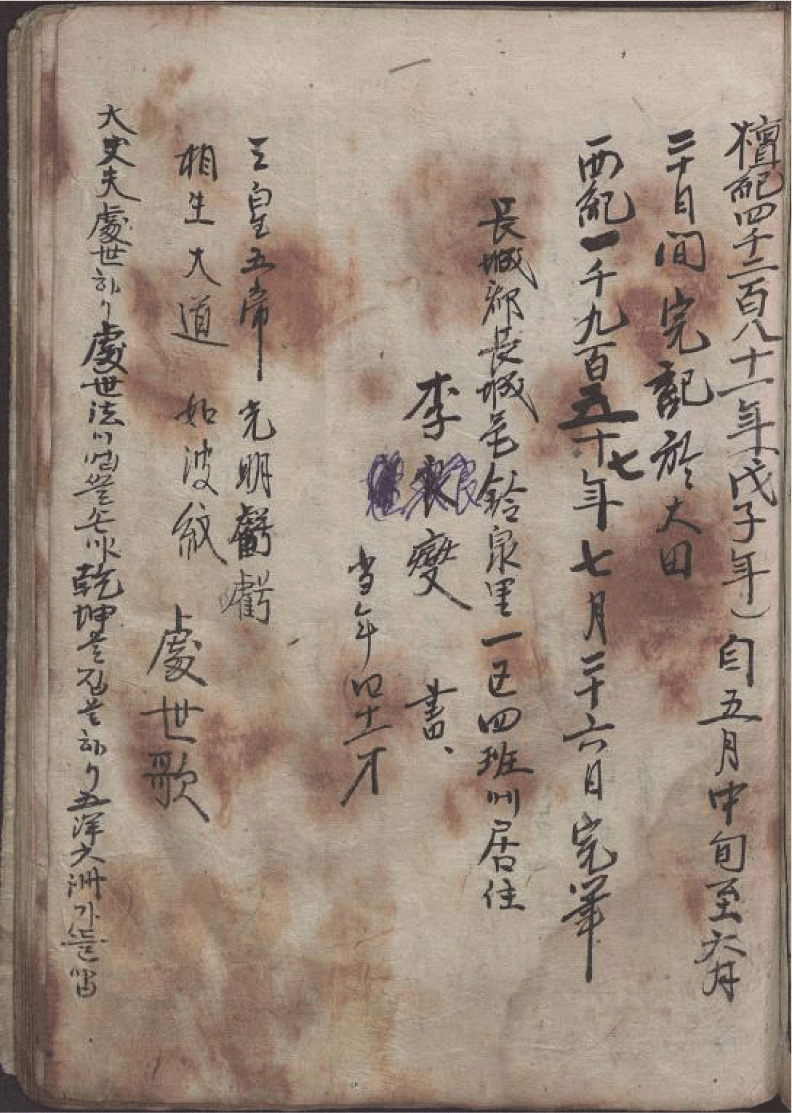 檀紀四千二百八十一年(戊子年)自五月中旬至六月
二十日间完記於大田
西紀一千九百五十七年七月二十六日完筆
長城郡長城邑鈴泉里一区四班에居住
李 燮 書、
当年四十一才
三皇五帝 光明
相生大道 如波紋
處世歌
大丈夫處世하니 處世法이 乾坤 하니 五洋大洲가